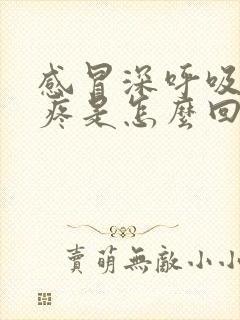 感冒深呼吸
疼是怎麼回
賣萌無敵小小